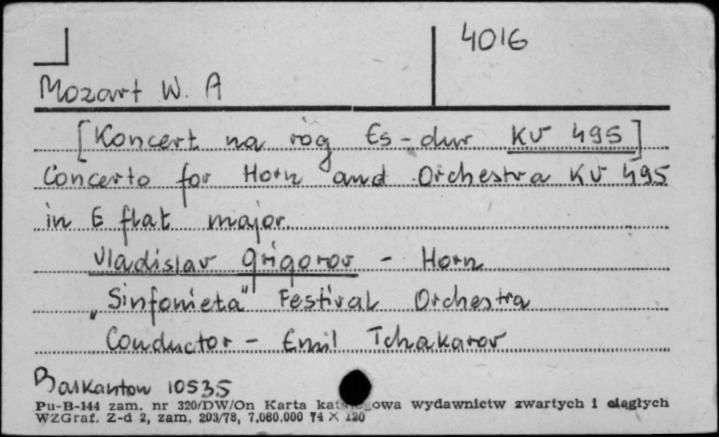 4016
Mozart W. A
[Koncert na róg Es-dur KV 495]
Concerto for Horn and Orchestra KV 495
in E flat major.
Vladislav Grigorov - Horn
„Sinfonieta" Festival Orchestra
Conductor - Emil Tchakarov
Balkanton 10535
Pu-B-144 zam. nr 320/DW/On Karta katalogowa wydawnictw zwartych i ciągłych
WZGraf. Z-d 2, zam. 203/78, 7.080.000 74 × 120